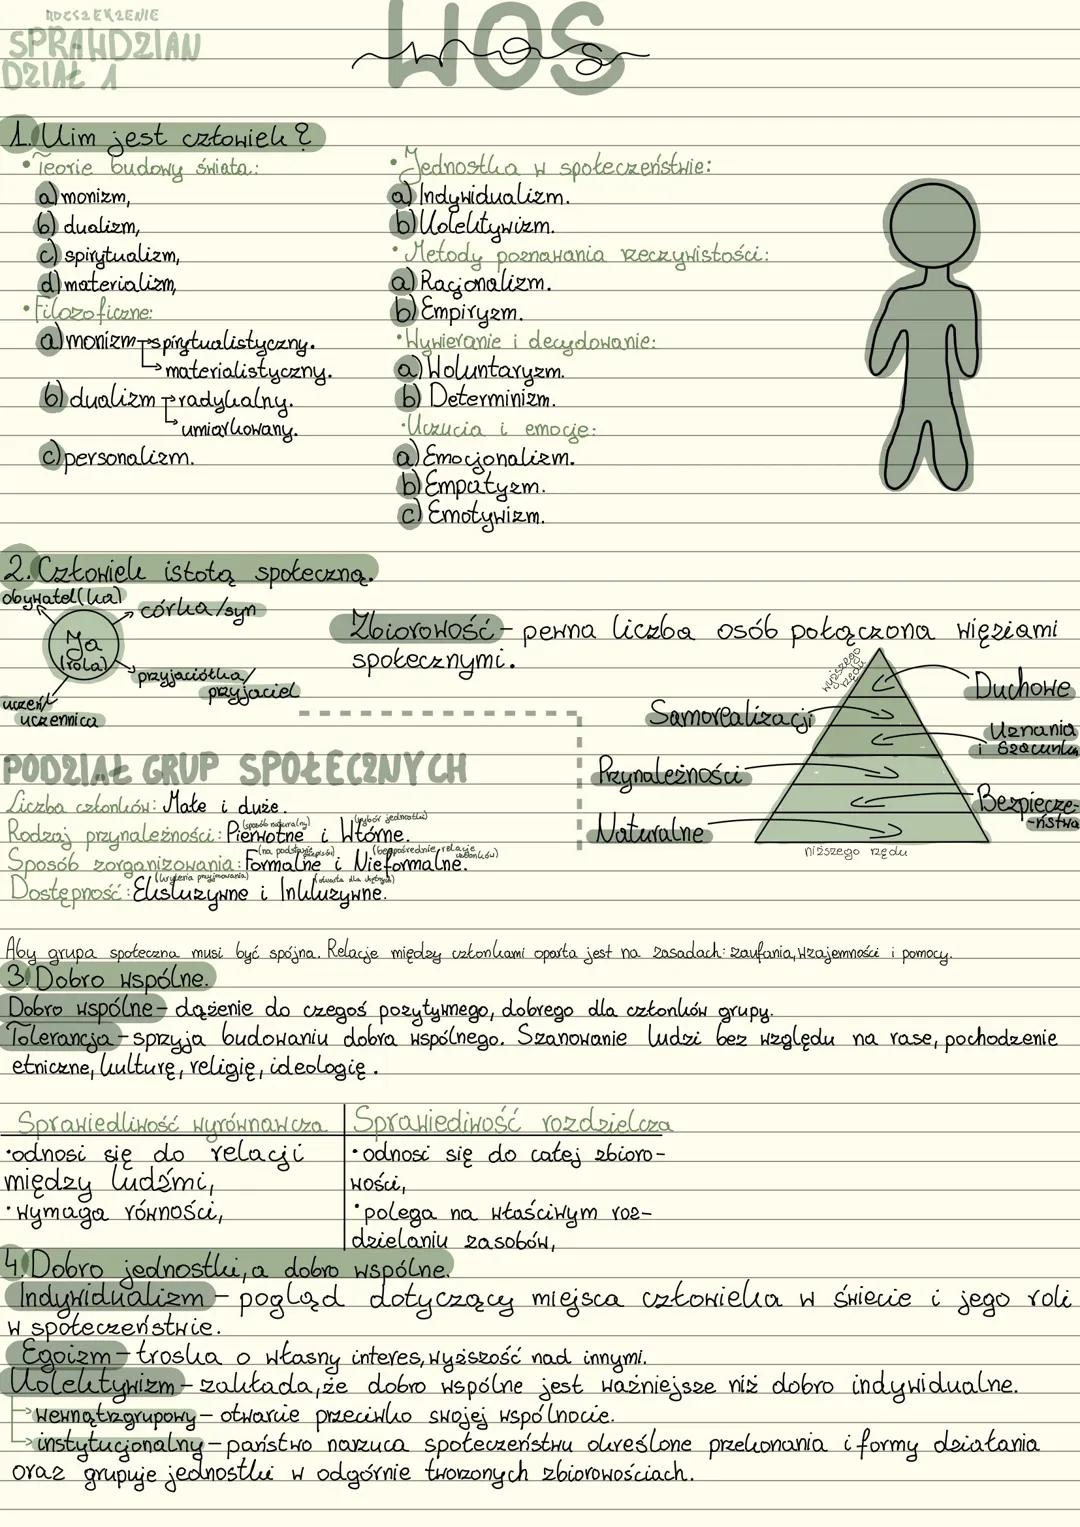 ROZSZERZENIE
SPRAWDZIAN
DZIAŁ 1
WOS
wos
1. Kim jest człowiek?
•Teorie budowy świata:
a) monizm,
b) dualizm,
c) spirytualizm,
d) materializm,
•Filozoficzne:
a) monizm → spirytualistyczny.
→ materialistyczny.
b) dualizm → radykalny.
→ umiarkowany.
c) personalizm.
•Jednostka w społeczeństwie:
a) Indywidualizm.
b) Kolektywizm.
•Metody poznawania rzeczywistości:
a) Racjonalizm.
b) Empiryzm.
•Wywieranie i decydowanie:
a) Woluntaryzm.
b) Determinizm.
•Uczucia i emocje:
a) Emocjonalizm.
b) Empatyzm.
c) Emotywizm.
2. Człowiek istotą społeczną.
obywatel(ka)
córka/syn
Ja
(rola)
przyjaciółka/
przyjaciel
uczeń/
uczennica
Zbiorowość - pewna liczba osób połączona więziami
społecznymi.
wyższego
rzędu
Duchowe
Samorealizacji
Uznania
i szacunku
Przynależności
Bezpiecze-
-ństwa
Naturalne
niższego rzędu
PODZIAŁ GRUP SPOŁECZNYCH
Liczba członków: Małe i duże.
(sposób naturalny) (wybór jednostki)
Rodzaj przynależności: Pierwotne i Wtórne.
(na podstawie przepisów) (bezpośrednie relacje członków)
Sposób zorganizowania: Formalne i Nieformalne.
(kryteria przyjmowania) (otwarta dla chętnych)
Dostępność: Ekskluzywne i Inkluzywne.
Aby grupa społeczna musi być spójna. Relacje między członkami oparta jest na zasadach: zaufania, wzajemności i pomocy.
3. Dobro wspólne.
Dobro wspólne - dążenie do czegoś pozytywnego, dobrego dla członków grupy.
Tolerancja - sprzyja budowaniu dobra wspólnego. Szanowanie ludzi bez względu na rase, pochodzenie
etniczne, kulturę, religię, ideologię.
Sprawiedliwość wyrównawcza
•odnosi się do relacji
między ludźmi,
•wymaga równości,
Sprawiedliwość rozdzielcza
•odnosi się do całej zbioro-
wości,
•polega na właściwym roz-
dzielaniu zasobów,
4. Dobro jednostki, a dobro wspólne.
Indywidualizm - pogląd dotyczący miejsca człowieka w świecie i jego roli
w społeczeństwie.
Egoizm - troska o własny interes, wyższość nad innymi.
Kolektywizm - zakłada, że dobro wspólne jest ważniejsze niż dobro indywidualne.
→ wewnątrzgrupowy - otwarcie przeciwko swojej wspólnocie.
→ instytucjonalny - państwo narzuca społeczeństwu określone przekonania i formy działania
oraz grupuje jednostki w odgórnie tworzonych zbiorowościach.